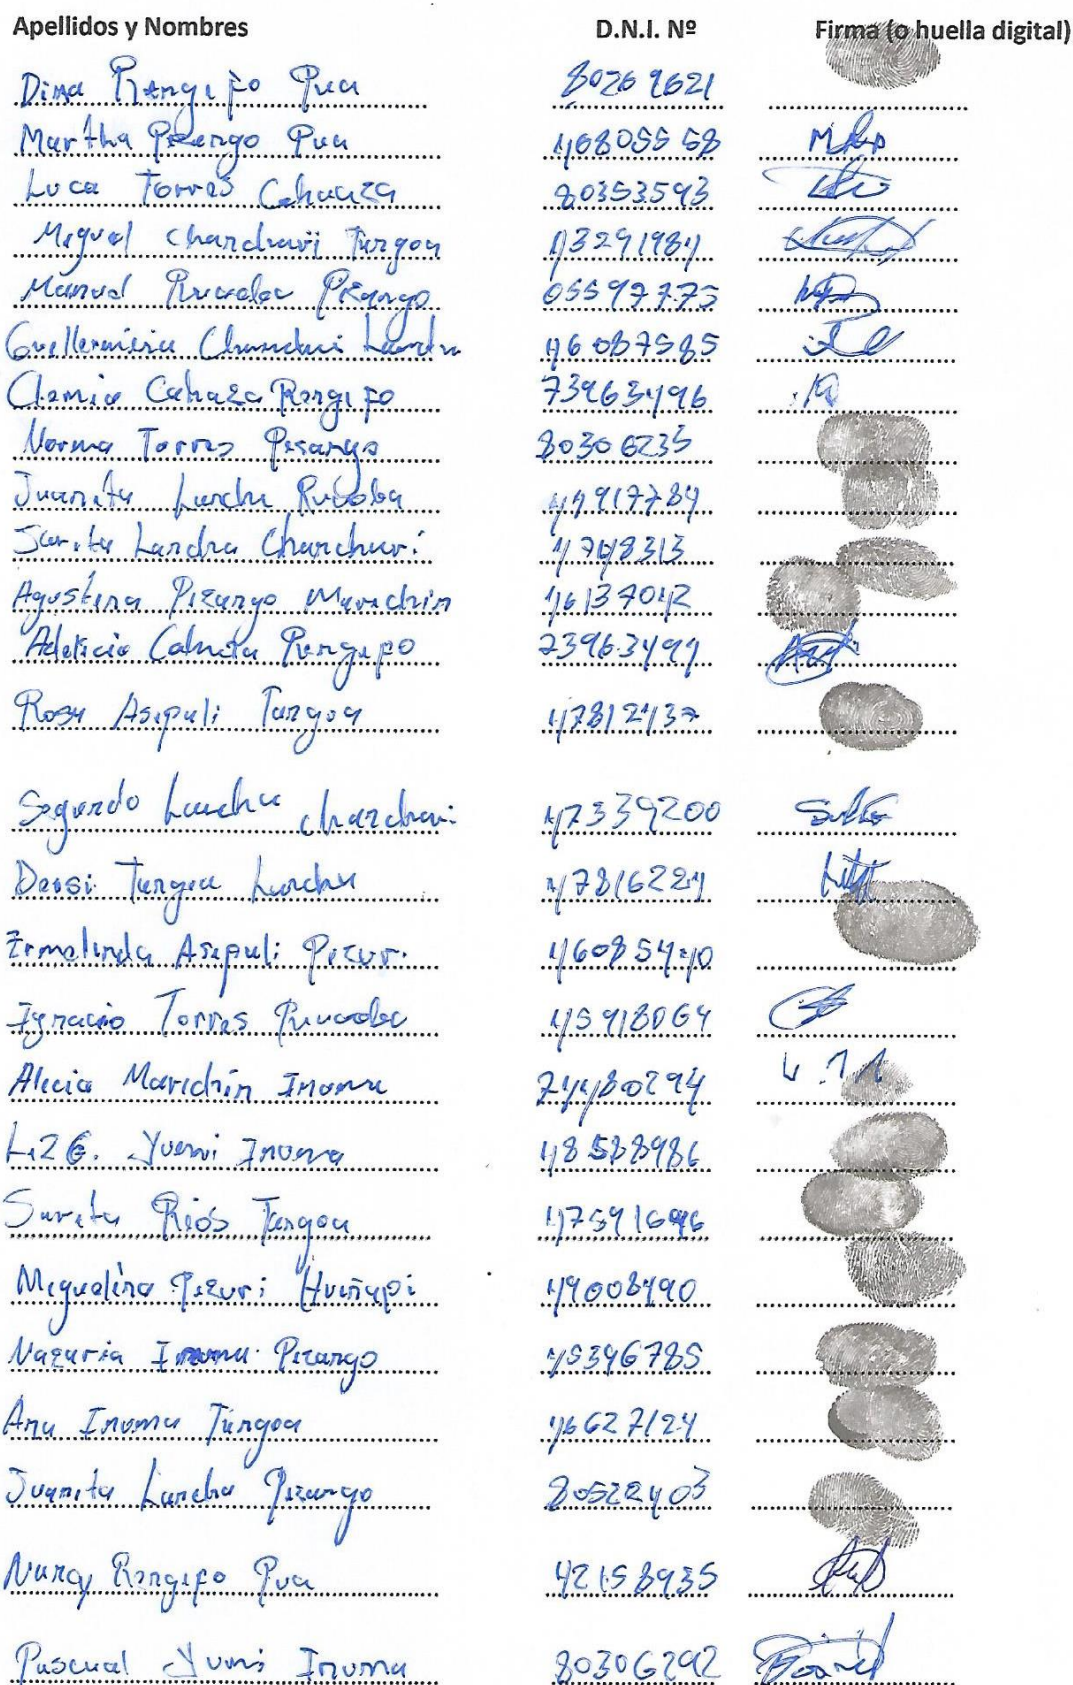 Apellidos y Nombres D.N.I. Nº Firma (o huella digital)
Dina Rengifo Pua 80269621
Martha Pizango Pua 46805558
Luca Torres Cahuaza 80353593
Miguel Chanchari Tangoa 43291984
Manuel Rucoba Pizango 05597773
Guillermina Chanchari Lancha 46087585
Clemia Cahaza Rengifo 73963496
Norma Torres Pisango 80306235
Juanita Lancha Rucoba 44917784
Sarita Lancha Chanchari 4748313
Agustina Pizango Marichin 46137042
Cahuaza Rengifo 73963499
Rosa Asipali Tangoa 47812437
Segundo Lancha Chanchari 47339200
Deisi Tangoa Lancha 47816224
Ermelinda Asipali Pizuri 46085440
Ignacio Torres Rucoba 45918064
Alicia Marichin Inoma 74480294
Yumi Inuma 48588986
Sarita Rios Tangoa
Miguelina Pizuri Huiñapi 49008490
Nazaria Inuma Pizango 45396785
Ana Inuma Tangoa 46627124
Juanita Lancha Pizango 80522403
Nancy Rengifo Pua 42158935
Pascual Yumi Inuma 80306292